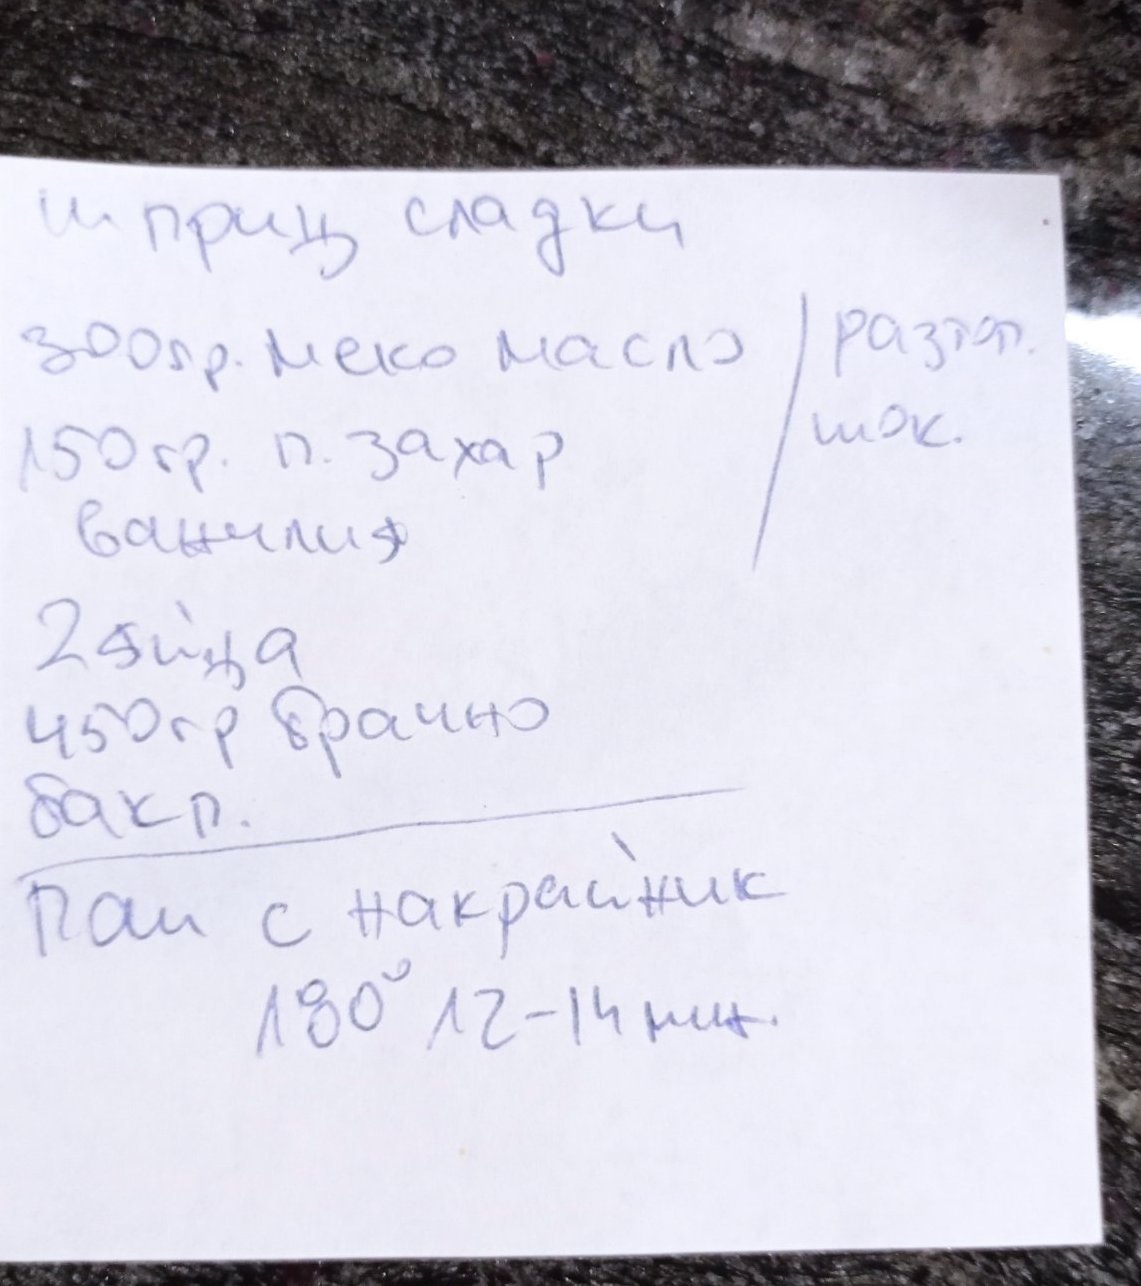 шприц сладки
300гр. меко масло / разтоп.
150гр. п. захар / шок.
ванилия
2 яйца
450гр брашно
бакп.
Пош с накрайник
180° 12-14 мин.